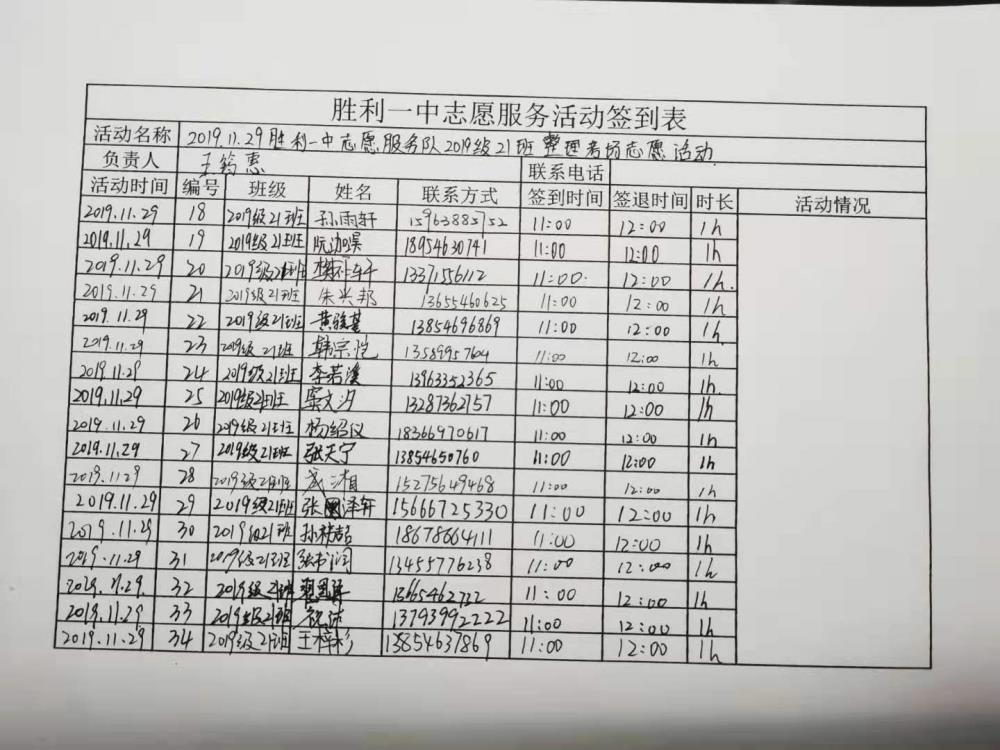 胜利一中志愿服务活动签到表
活动名称 2019.11.29胜利一中志愿服务队2019级21班 整理考场志愿活动
负责人 王筠惠 联系电话
活动时间 编号 班级 姓名 联系方式 签到时间 签退时间 时长 活动情况
2019.11.29 18 2019级21班 孙雨轩 15963885752 11:00 12:00 1h
2019.11.29 19 2019级21班 18954630741 11:00 12:00 1h
2019.11.29 20 2019级21班 13371556112 11:00 12:00 1h.
2019.11.29 21 2019级21班 朱兴邦 13655460625 11:00 12:00 1h
2019.11.29 22 2019级21班 13854696869 11:00 12:00 1h.
2019.11.29 23 2019级21班 韩宗悦 13589957604 11:00 12:00 1h
2019.11.29 24 2019级21班 李若溪 13963352365 11:00 12:00 1h
2019.11.29 25 2019级21班 窦文汐 13287362757 11:00 12:00 1h
2019.11.29 26 2019级21班 杨绍仪 18366970617 11:00 12:00 1h
2019.11.29 27 2019级21班 张天宁 13854650760 11:00 12:00 1h
2019.11.29 28 2019级21班 15275649468 11:00 12:00 1h
2019.11.29 29 2019级21班 张泽轩 15666725330 11:00 12:00 1h
2019.11.29 30 2019级21班 18678664111 11:00 12:00 1h
2019.11.29 31 2019级21班 13455776238 11:00 12:00 1h
2019.11.29 32 2019级21班 13665462722 11:00 12:00 1h
2019.11.29 33 2019级21班 13793992222 11:00 12:00 1h
2019.11.29 34 2019级21班 王梓杉 13854637869 11:00 12:00 1h